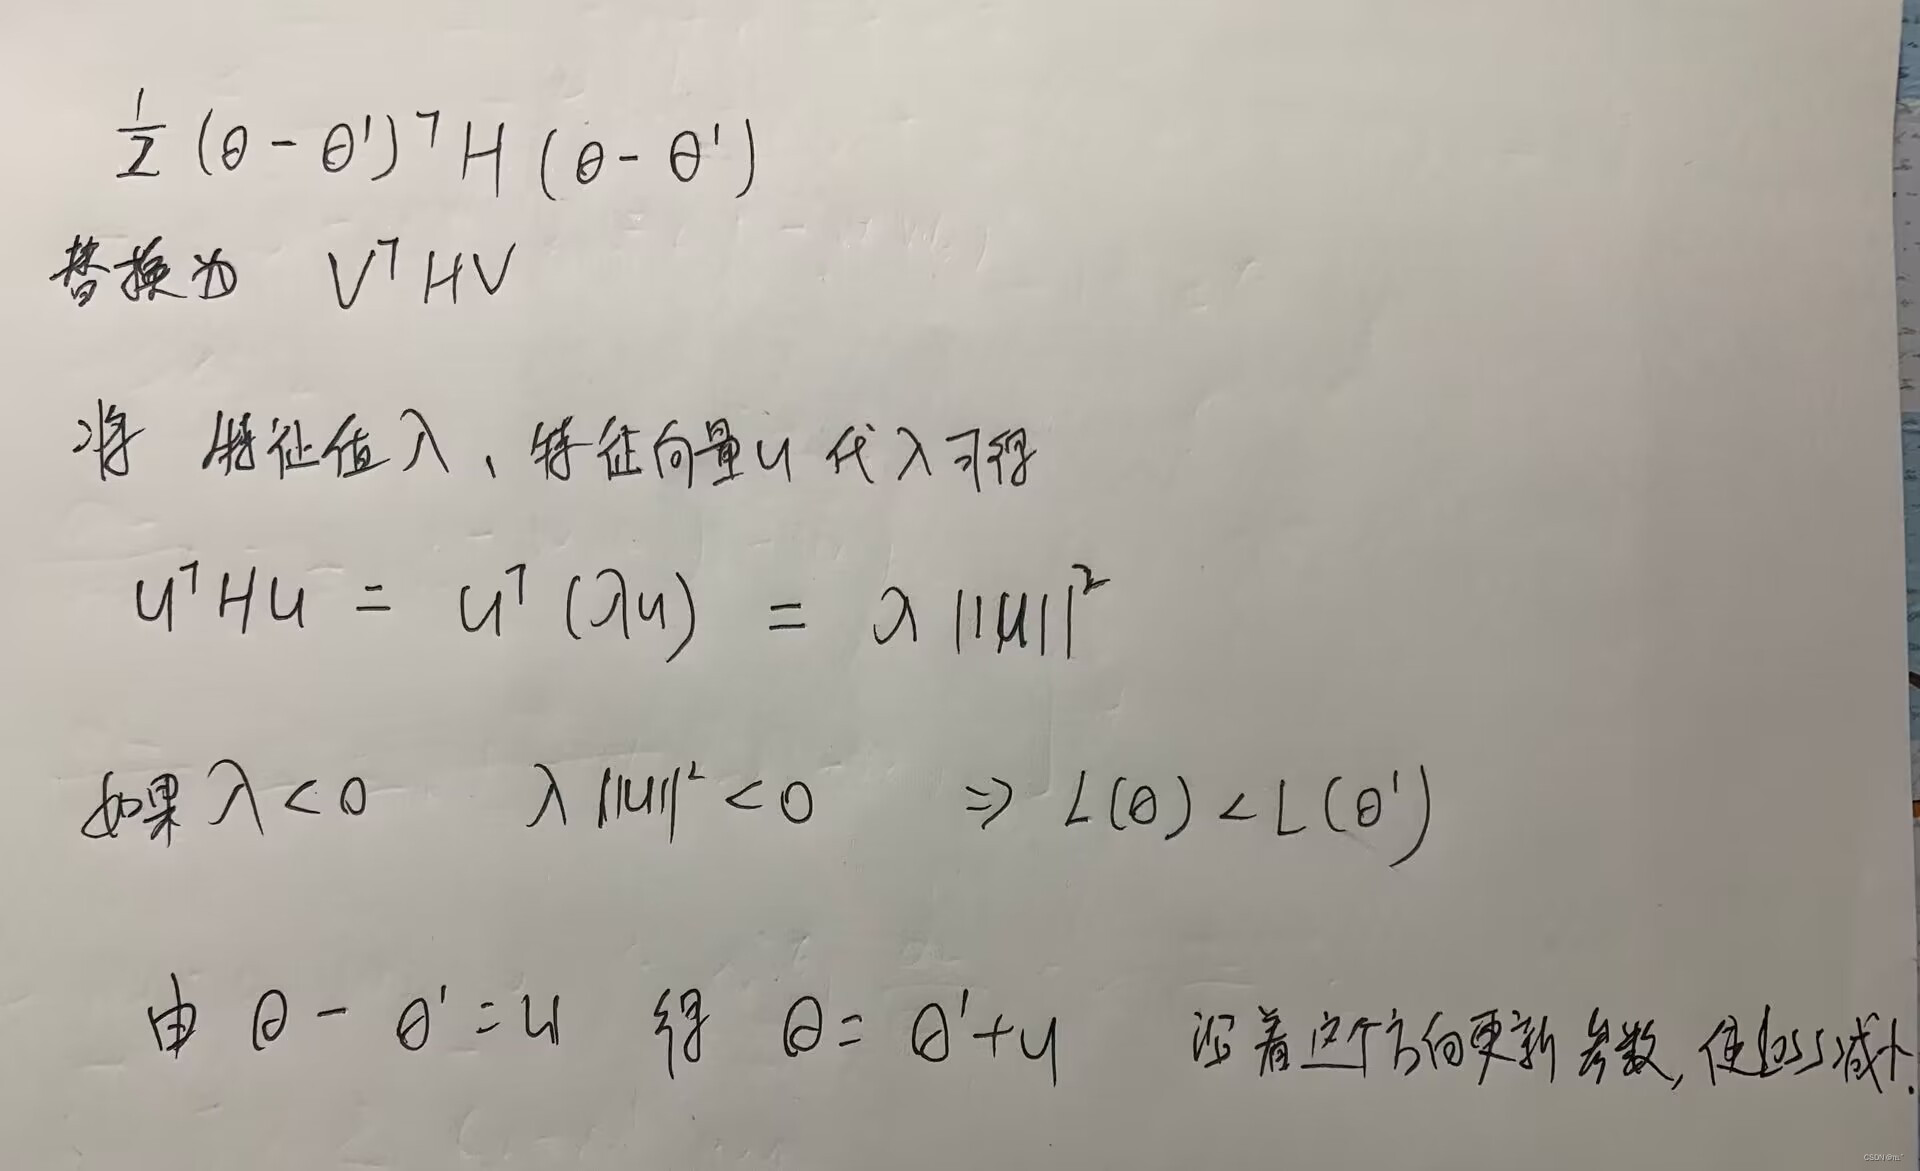 ½ (θ - θ')ᵀ H (θ - θ')
替换为 VᵀHV
将 特征值λ、特征向量u 代入可得
uᵀHu = uᵀ(λu) = λ||u||²
如果 λ<0 λ||u||²<0 ⇒ L(θ)<L(θ')
由 θ - θ' = u 得 θ = θ'+u 沿着这个方向更新参数,使loss减小.